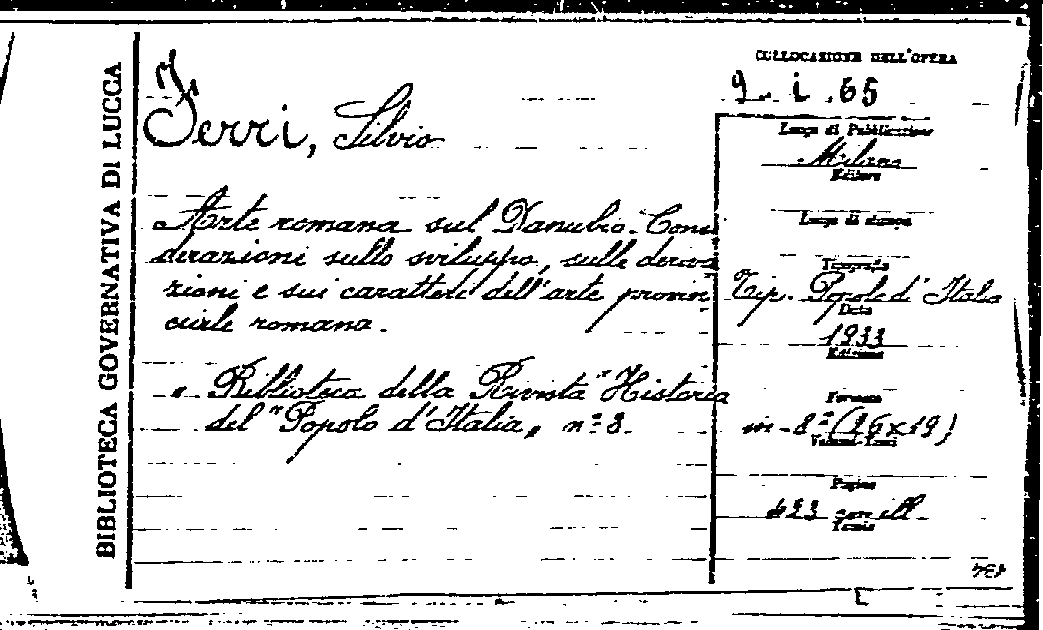 BIBLIOTECA GOVERNATIVA DI LUCCA
Ferri, Silvio
Arte romana sul Danubio. Consi
derazioni sullo sviluppo, sulle deriva
zioni e sui caratteri dell'arte provin
ciale romana.
" Biblioteca della Rivista "Historia
del "Popolo d'Italia" n.º 3.
COLLOCAZIONE DELL'OPERA
9. i. 65
Luogo di Pubblicazione
Milano
Editore
Luogo di stampa
Tipografia
Tip. Popolo d'Italia
Data
1933
Edizione
Formato
in-8º (26x19)
Pagine
423 con ill.